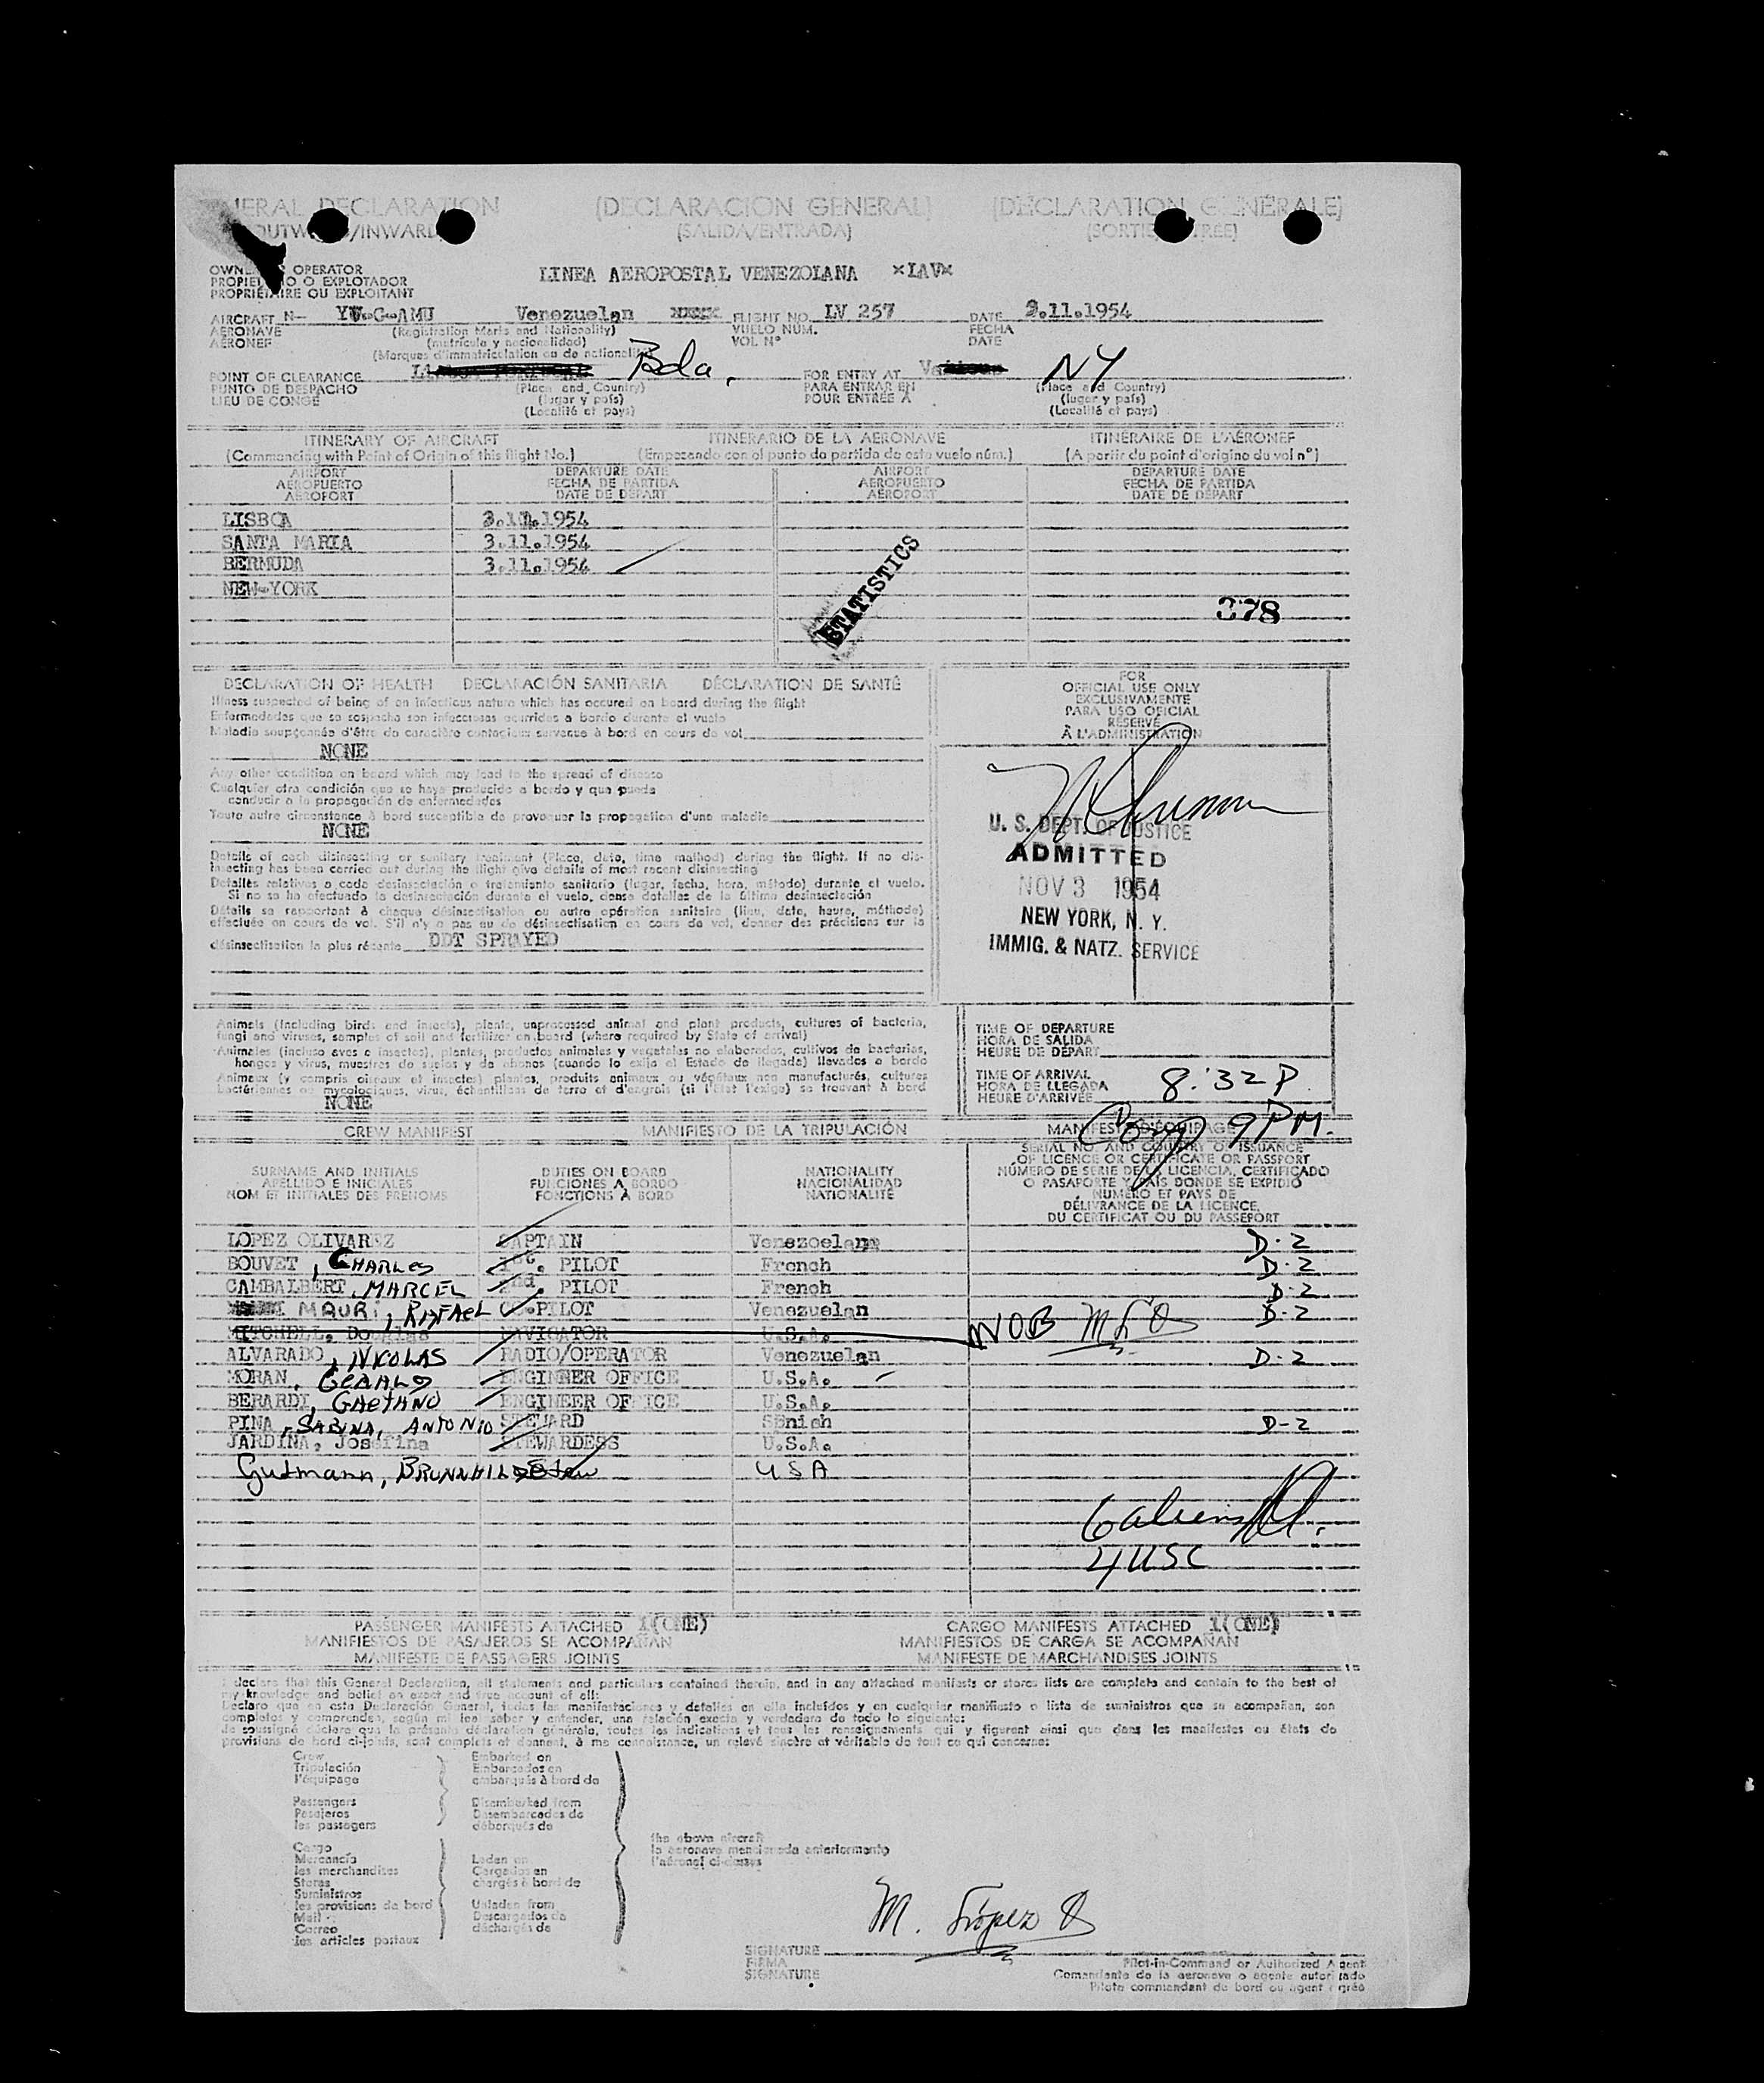 GENERAL DECLARATION (DECLARACION GENERAL) (DÉCLARATION GÉNÉRALE)
(OUTWARD/INWARD) (SALIDA/ENTRADA) (SORTIE/ENTRÉE)
OWNER OR OPERATOR
PROPIETARIO O EXPLOTADOR LINEA AEROPOSTAL VENEZOLANA *LAV*
PROPRIÉTAIRE OU EXPLOITANT
AIRCRAFT N- YV-C-AMU Venezuelan FLIGHT NO. LV 257 DATE 3.11.1954
AERONAVE (Registration Marks and Nationality) VUELO NÚM. FECHA
AÉRONEF (matrícula y nacionalidad) VOL N° DATE
(Marques d'immatriculation ou de nationalité)
POINT OF CLEARANCE Bda, FOR ENTRY AT NY
PUNTO DE DESPACHO (Place and Country) PARA ENTRAR EN (Place and Country)
LIEU DE CONGÉ (lugar y país) POUR ENTRÉE A (lugar y país)
(Localité et pays) (Localité et pays)
ITINERARY OF AIRCRAFT ITINERARIO DE LA AERONAVE ITINÉRAIRE DE L'AÉRONEF
(Commencing with Point of Origin of this flight No.) (Empezando con el punto de partida de este vuelo núm.) (A partir du point d'origine du vol n°)
AIRPORT DEPARTURE DATE AIRPORT DEPARTURE DATE
AEROPUERTO FECHA DE PARTIDA AEROPUERTO FECHA DE PARTIDA
AÉROPORT DATE DE DÉPART AÉROPORT DATE DE DÉPART
LISBOA 3.11.1954
SANTA MARIA 3.11.1954
BERMUDA 3.11.1954
NEW-YORK
STATISTICS
378
DECLARATION OF HEALTH DECLARACIÓN SANITARIA DÉCLARATION DE SANTÉ
Illness suspected of being of an infectious nature which has occured on board during the flight
Enfermedades que se sospecha son infecciosas ocurridas a bordo durante el vuelo
Maladie soupçonnée d'être de caractère contagieux survenue à bord en cours de vol
NONE
Any other condition on board which may lead to the spread of disease
Cualquier otra condición que se haya producido a bordo y que pueda
conducir a la propagación de enfermedades
Toute autre circonstance à bord susceptible de provoquer la propagation d'une maladie
NONE
Details of each disinsecting or sanitary treatment (Place, date, time method) during the flight. If no dis-
insecting has been carried out during the flight give details of most recent disinsecting
Detalles relativos a cada desinsectación o tratamiento sanitario (lugar, fecha, hora, método) durante el vuelo.
Si no se ha efectuado la desinsectación durante el vuelo, dense detalles de la última desinsectación
Détails se rapportant à chaque désinsectisation ou autre opération sanitaire (lieu, date, heure, méthode)
effectuée en cours de vol. S'il n'y a pas eu de désinsectisation en cours de vol, donner des précisions sur la
désinsectisation la plus récente DDT SPRAYED
FOR
OFFICIAL USE ONLY
EXCLUSIVAMENTE
PARA USO OFICIAL
RÉSERVÉ
À L'ADMINISTRATION
U. S. DEPT. OF JUSTICE
ADMITTED
NOV 3 1954
NEW YORK, N. Y.
IMMIG. & NATZ. SERVICE
Animals (including birds and insects), plants, unprocessed animal and plant products, cultures of bacteria,
fungi and viruses, samples of soil and fertilizer on board (where required by State of arrival)
Animales (incluso aves e insectos), plantas, productos animales y vegetales no elaborados, cultivos de bacterias,
hongos y virus, muestras de suelos y de abonos (cuando lo exija el Estado de llegada) llevados a bordo
Animaux (y compris oiseaux et insectes) plantes, produits animaux ou végétaux non manufacturés, cultures
bactériennes ou mycologiques, virus, échantillons de terre et d'engrais (si l'État l'exige) se trouvant à bord
NONE
TIME OF DEPARTURE
HORA DE SALIDA
HEURE DE DÉPART
TIME OF ARRIVAL
HORA DE LLEGADA 8:32 P
HEURE D'ARRIVÉE
9 PM.
CREW MANIFEST MANIFIESTO DE LA TRIPULACIÓN MANIFESTE D'ÉQUIPAGE
SURNAME AND INITIALS DUTIES ON BOARD NATIONALITY SERIAL NO. AND COUNTRY OF ISSUANCE
APELLIDO E INICIALES FUNCIONES A BORDO NACIONALIDAD OF LICENCE OR CERTIFICATE OR PASSPORT
NOM ET INITIALES DES PRÉNOMS FONCTIONS À BORD NATIONALITÉ NÚMERO DE SERIE DE LA LICENCIA, CERTIFICADO
O PASAPORTE Y PAÍS DONDE SE EXPIDIÓ
NUMÉRO ET PAYS DE
DÉLIVRANCE DE LA LICENCE,
DU CERTIFICAT OU DU PASSEPORT
LOPEZ OLIVAREZ CAPTAIN Venezoelane D-2
BOUVET, CHARLES 1st. PILOT French D-2
CAMBALBERT, MARCEL 2nd. PILOT French D-2
MAURI, RAFAEL CO.PILOT Venezuelan D-2
MITCHELL, Douglas NAVIGATOR U.S.A. NOB MLO
ALVARADO, NICOLAS RADIO/OPERATOR Venezuelan D-2
MORAN, GERALD ENGINNER OFFICE U.S.A.
BERARDI, GAETANO ENGINEER OFFICE U.S.A.
PINA, SABINA, ANTONIO STEWARD D-2
JARDINA, Josefina STEWARDESS U.S.A.
Gutmann, BRUNNHILDE Stew USA
6 aliens
4 USC
PASSENGER MANIFESTS ATTACHED 1(ONE) CARGO MANIFESTS ATTACHED 1(ONE)
MANIFIESTOS DE PASAJEROS SE ACOMPAÑAN MANIFIESTOS DE CARGA SE ACOMPAÑAN
MANIFESTE DE PASSAGERS JOINTS MANIFESTE DE MARCHANDISES JOINTS
I declare that this General Declaration, all statements and particulars contained therein, and in any attached manifests or stores lists are complete and contain to the best of
my knowledge and belief an exact and true account of all:
Declaro que en esta Declaración General, todas las manifestaciones y detalles en ella incluidos y en cualquier manifiesto o lista de suministros que se acompañan, son
completos y comprenden, según mi leal saber y entender, una relación exacta y verdadera de todo lo siguiente:
Je soussigné déclare que la présente déclaration générale, toutes les indications et tous les renseignements qui y figurent ainsi que dans les manifestes ou états de
provisions de bord ci-joints, sont complets et donnent, à ma connaissance, un relevé sincère et véritable de tout ce qui concerne:
Crew Embarked on
Tripulación Embarcados en
l'équipage embarqués à bord de
Passengers Disembarked from
Pasajeros Desembarcados de
les passagers débarqués de
the above aircraft
la aeronave mencionada anteriormente
l'aéronef ci-dessus
Cargo
Mercancía Laden on
les marchandises Cargados en
Stores chargés à bord de
Suministros
les provisions de bord Unladen from
Mail Descargados de
Correo déchargés de
les articles postaux
M. López O
SIGNATURE
FIRMA Pilot-in-Command or Authorized Agent
SIGNATURE Comandante de la aeronave o agente autorizado
Pilote commandant de bord ou agent agréé